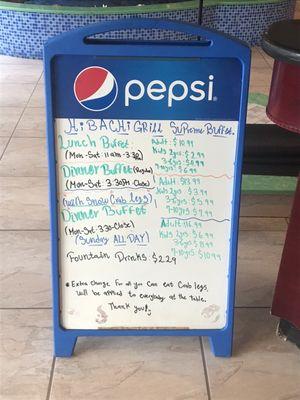 pepsi
Hibachi Grill Supreme Buffet
Lunch Buffet
(Mon-Sat: 11am-3:30)
Adult: $10.99
Kids 2yrs $2.99
7-10yrs $6.99
Dinner Buffet (Regular)
(Mon-Sat: 3:30PM-Close)
Adult: $13.99
Kids 2yrs $3.99
3-6yrs $5.99
7-10yrs $7.99
(with Snow Crab legs)
Dinner Buffet
(Mon-Sat: 3:30-Close)
(Sunday ALL DAY)
Kids 2yrs $6.99
3-6yrs $8.99
7-10yrs $10.99
Fountain Drinks: $2.29
* Extra Charge For all you Can eat Crab legs,
will be applied to everybody at the table.
Thank you!